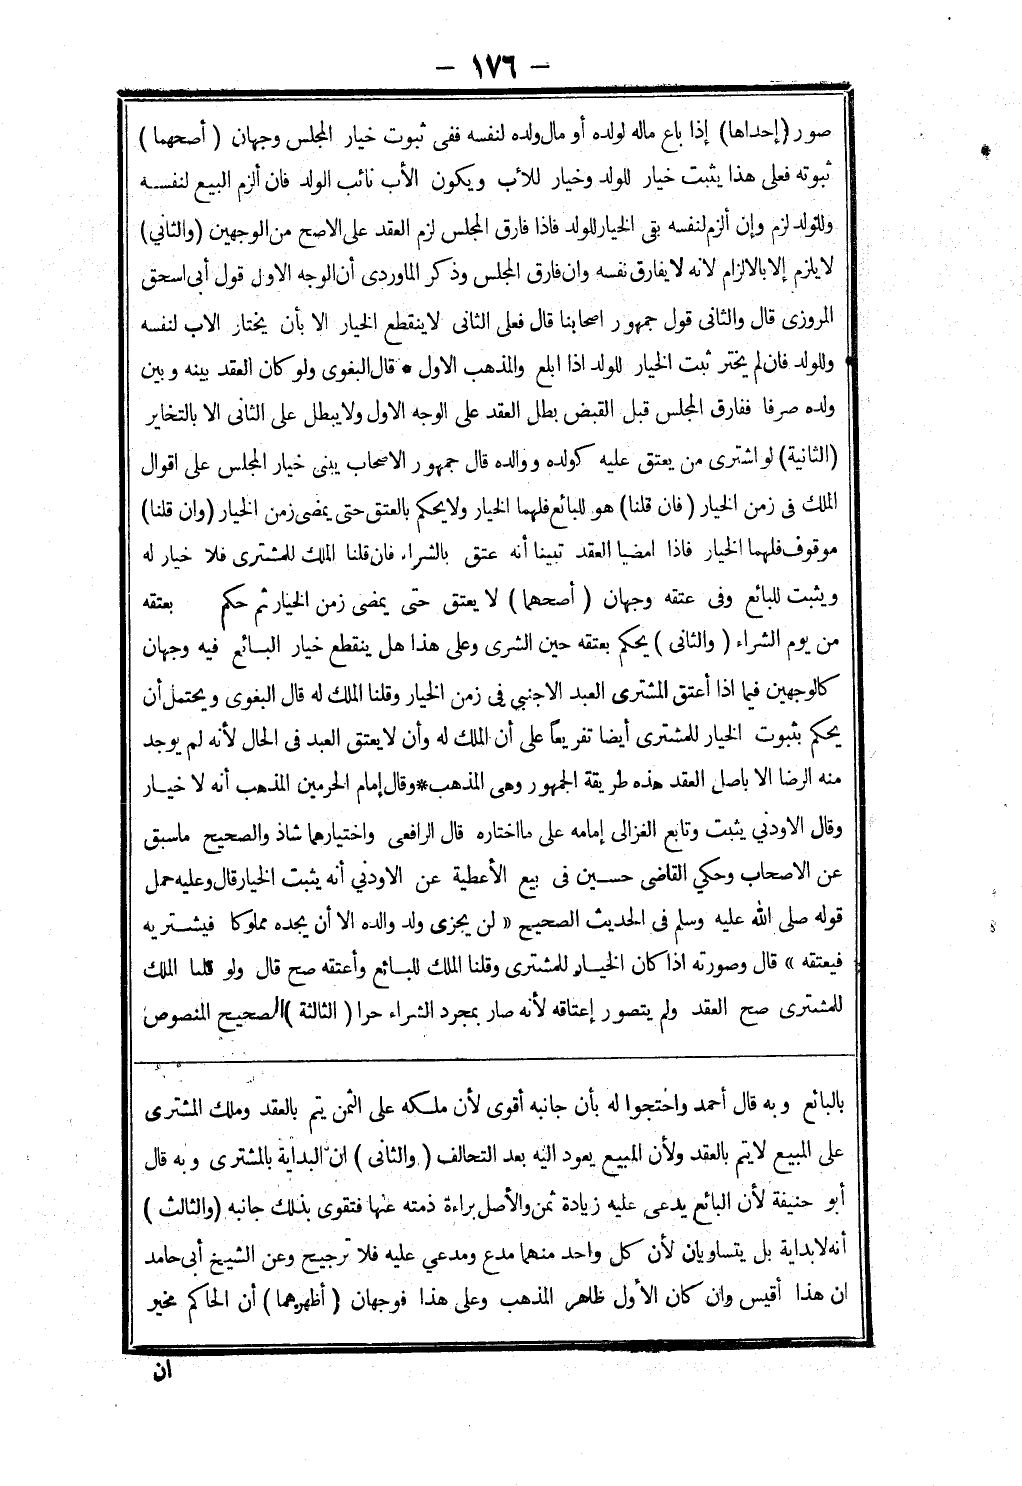 — ١٧٦ —
صور (إحداها) إذا باع ماله لولده أو مال ولده لنفسه ففى ثبوت خيار المجلس وجهان ( أصحهما )
ثبوته فعلى هذا يثبت خيار للولد وخيار للأب ويكون الأب نائب الولد فان ألزم البيع لنفسه
وللولد لزم وإن ألزم لنفسه بقى الخيار للولد فاذا فارق المجلس لزم العقد على الاصح من الوجهين (والثانى)
لا يلزم إلا بالالزام لانه لا يفارق نفسه وان فارق المجلس وذكر الماوردى أن الوجه الاول قول أبى اسحق
المروزى قال والثانى قول جمهور اصحابنا قال فعلى الثانى لا ينقطع الخيار الا بأن يختار الاب لنفسه
وللولد فان لم يختر ثبت الخيار للولد اذا ابلع والمذهب الاول * قال البغوى ولو كان العقد بينه وبين
ولده صرفا ففارق المجلس قبل القبض بطل العقد على الوجه الاول ولا يبطل على الثانى الا بالتخاير
(الثانية) لو اشترى من يعتق عليه كولده ووالده قال جمهور الاصحاب يبنى خيار المجلس على اقوال
الملك فى زمن الخيار ( فان قلنا) هو للبائع فلهما الخيار ولا يحكم بالعتق حتى يمضى زمن الخيار (وان قلنا)
موقوف فلهما الخيار فاذا امضيا العقد تبينا أنه عتق بالشراء فان قلنا الملك للمشترى فلا خيار له
ويثبت للبائع وفى عتقه وجهان ( أصحهما ) لا يعتق حتى يمضى زمن الخيار ثم حكم بعتقه
من يوم الشراء ( والثانى ) يحكم بعتقه حين الشرى وعلى هذا هل ينقطع خيار البائع فيه وجهان
كالوجهين فيما اذا أعتق المشترى العبد الاجنبي فى زمن الخيار وقلنا الملك له قال البغوى ويحتمل أن
يحكم بثبوت الخيار للمشترى أيضا تفريعاً على أن الملك له وأن لا يعتق العبد فى الحال لأنه لم يوجد
منه الرضا الا باصل العقد هذه طريقة الجمهور وهى المذهب*وقال إمام الحرمين المذهب أنه لا خيار
وقال الاودنى يثبت وتابع الغزالى إمامه على ما اختاره قال الرافعى واختيارهما شاذ والصحيح ما سبق
عن الاصحاب وحكي القاضى حسين فى بيع الأعطية عن الاودنى أنه يثبت الخيار قال وعليه حمل
قوله صلى الله عليه وسلم فى الحديث الصحيح « لن يجزى ولد والده الا أن يجده مملوكا فيشتريه
فيعتقه » قال وصورته اذا كان الخيار للمشترى وقلنا الملك للبائع وأعتقه صح قال ولو قلنا الملك
للمشترى صح العقد ولم يتصور إعتاقه لأنه صار بمجرد الشراء حرا ( الثالثة ) الصحيح المنصوص
بالبائع وبه قال أحمد واحتجوا له بأن جانبه أقوى لأن ملكه على الثمن يتم بالعقد وملك المشترى
على المبيع لا يتم بالعقد ولأن المبيع يعود اليه بعد التحالف ( والثانى ) ان البداية بالمشترى وبه قال
أبو حنيفة لأن البائع يدعى عليه زيادة ثمن والأصل براءة ذمته عنها فتقوى بذلك جانبه (والثالث )
أنه لا بداية بل يتساويان لأن كل واحد منهما مدع ومدعي عليه فلا ترجيح وعن الشيخ أبى حامد
ان هذا أقيس وان كان الأول ظاهر المذهب وعلى هذا فوجهان ( أظهرهما ) أن الحاكم مخير
ان